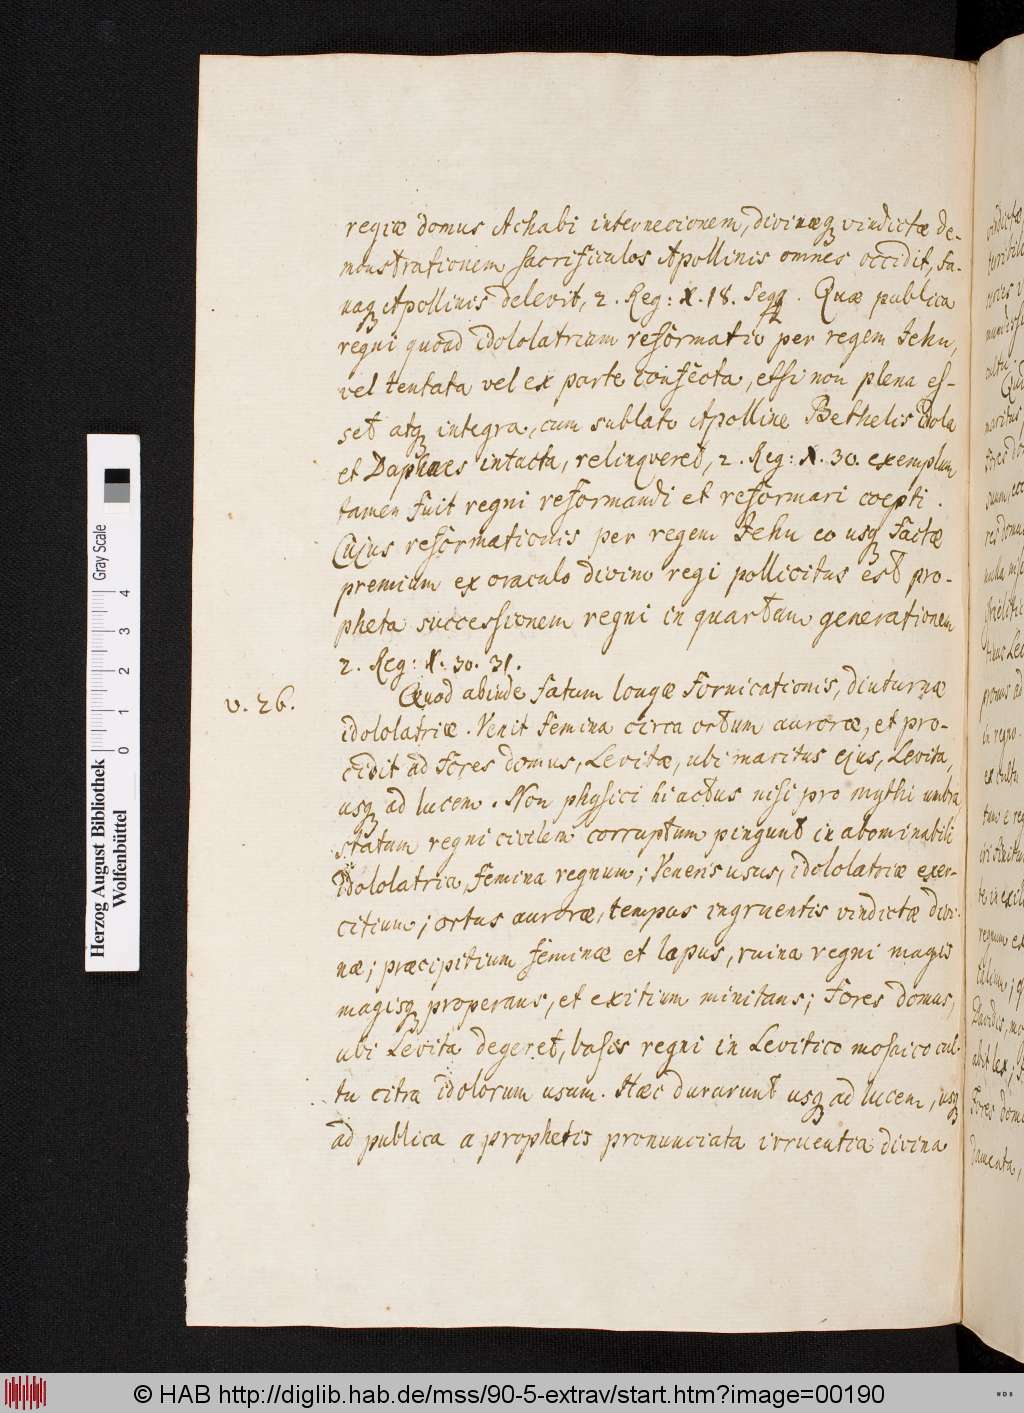 regiæ domus Achabi internecionem, divinæq vindictæ de-
monstrationem sacrificulos Apollinis omnes occidit, fa-
naq Apollinis delevit, 2. Reg: X. 18. seqq. Quæ publica
regni quoad idololatriam reformatio per regem Jehu,
vel tentata vel ex parte confecta, etsi non plena es-
set atq integra, cum sublato Apolline Bethelis idola
et Daphnes intacta, relinqveret, 2. Reg: X. 30. exemplum
tamen fuit regni reformandi et reformari coepti.
Cujus reformationis per regem Jehu eo usq factæ
premium ex oraculo divino regi pollicitus est pro-
pheta successionem regni in quartam generationem
2. Reg: X. 30. 31.
v. 26.
Quod abinde fatum longæ fornicationis, diuturnæ
idololatriæ. Venit femina circa ortum auroræ, et pro-
cidit ad fores domus, Levitæ, ubi maritus ejus, Levita,
usq ad lucem. Non physici hi actus nisi pro mythi umbra
statum regni civilem corruptum pingunt in abominabili
idololatria, femina regnum; Veneris usus, idololatriæ exer-
citium; ortus auroræ, tempus ingruentis vindictæ divi-
næ; præcipitium feminæ et lapsus, ruina regni magis
magisq properans, et exitium minitans; fores domus,
ubi Levita degeret, basis regni in Levitico mosaico cul-
tu citra idolorum usum. Hæc durarunt usq ad lucem, usq
ad publica a prophetis pronunciata irruentia divina
Herzog August Bibliothek
Wolfenbüttel
0 1 2 3 4
Gray Scale
© HAB http://diglib.hab.de/mss/90-5-extrav/start.htm?image=00190